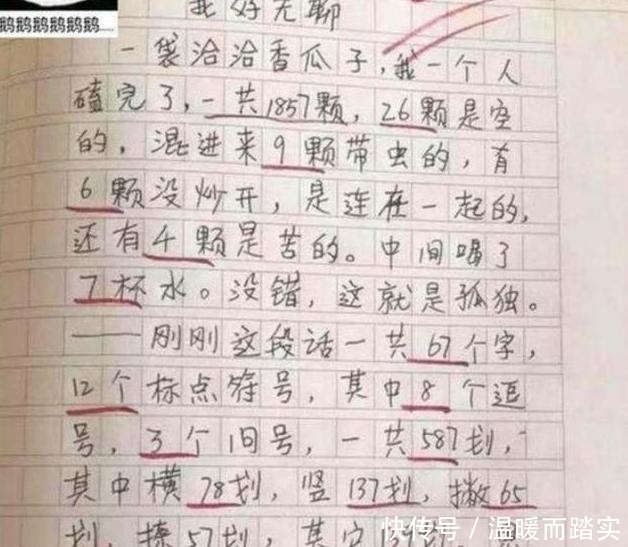 鹅鹅鹅鹅鹅鹅鹅......
我好无聊
一袋洽洽香瓜子,我一个人
磕完了,一共1857颗,26颗是空
的,混进来9颗带虫的,有
6颗没炒开,是连在一起的,
还有4颗是苦的。中间喝了
7杯水。没错,这就是孤独。
——刚刚这段话一共67个字,
12个标点符号,其中8个逗
号,3个旧号,一共587划,
其中横78划,竖137划,撇65
划,捺57划,其它139
快传号/温暖而踏实